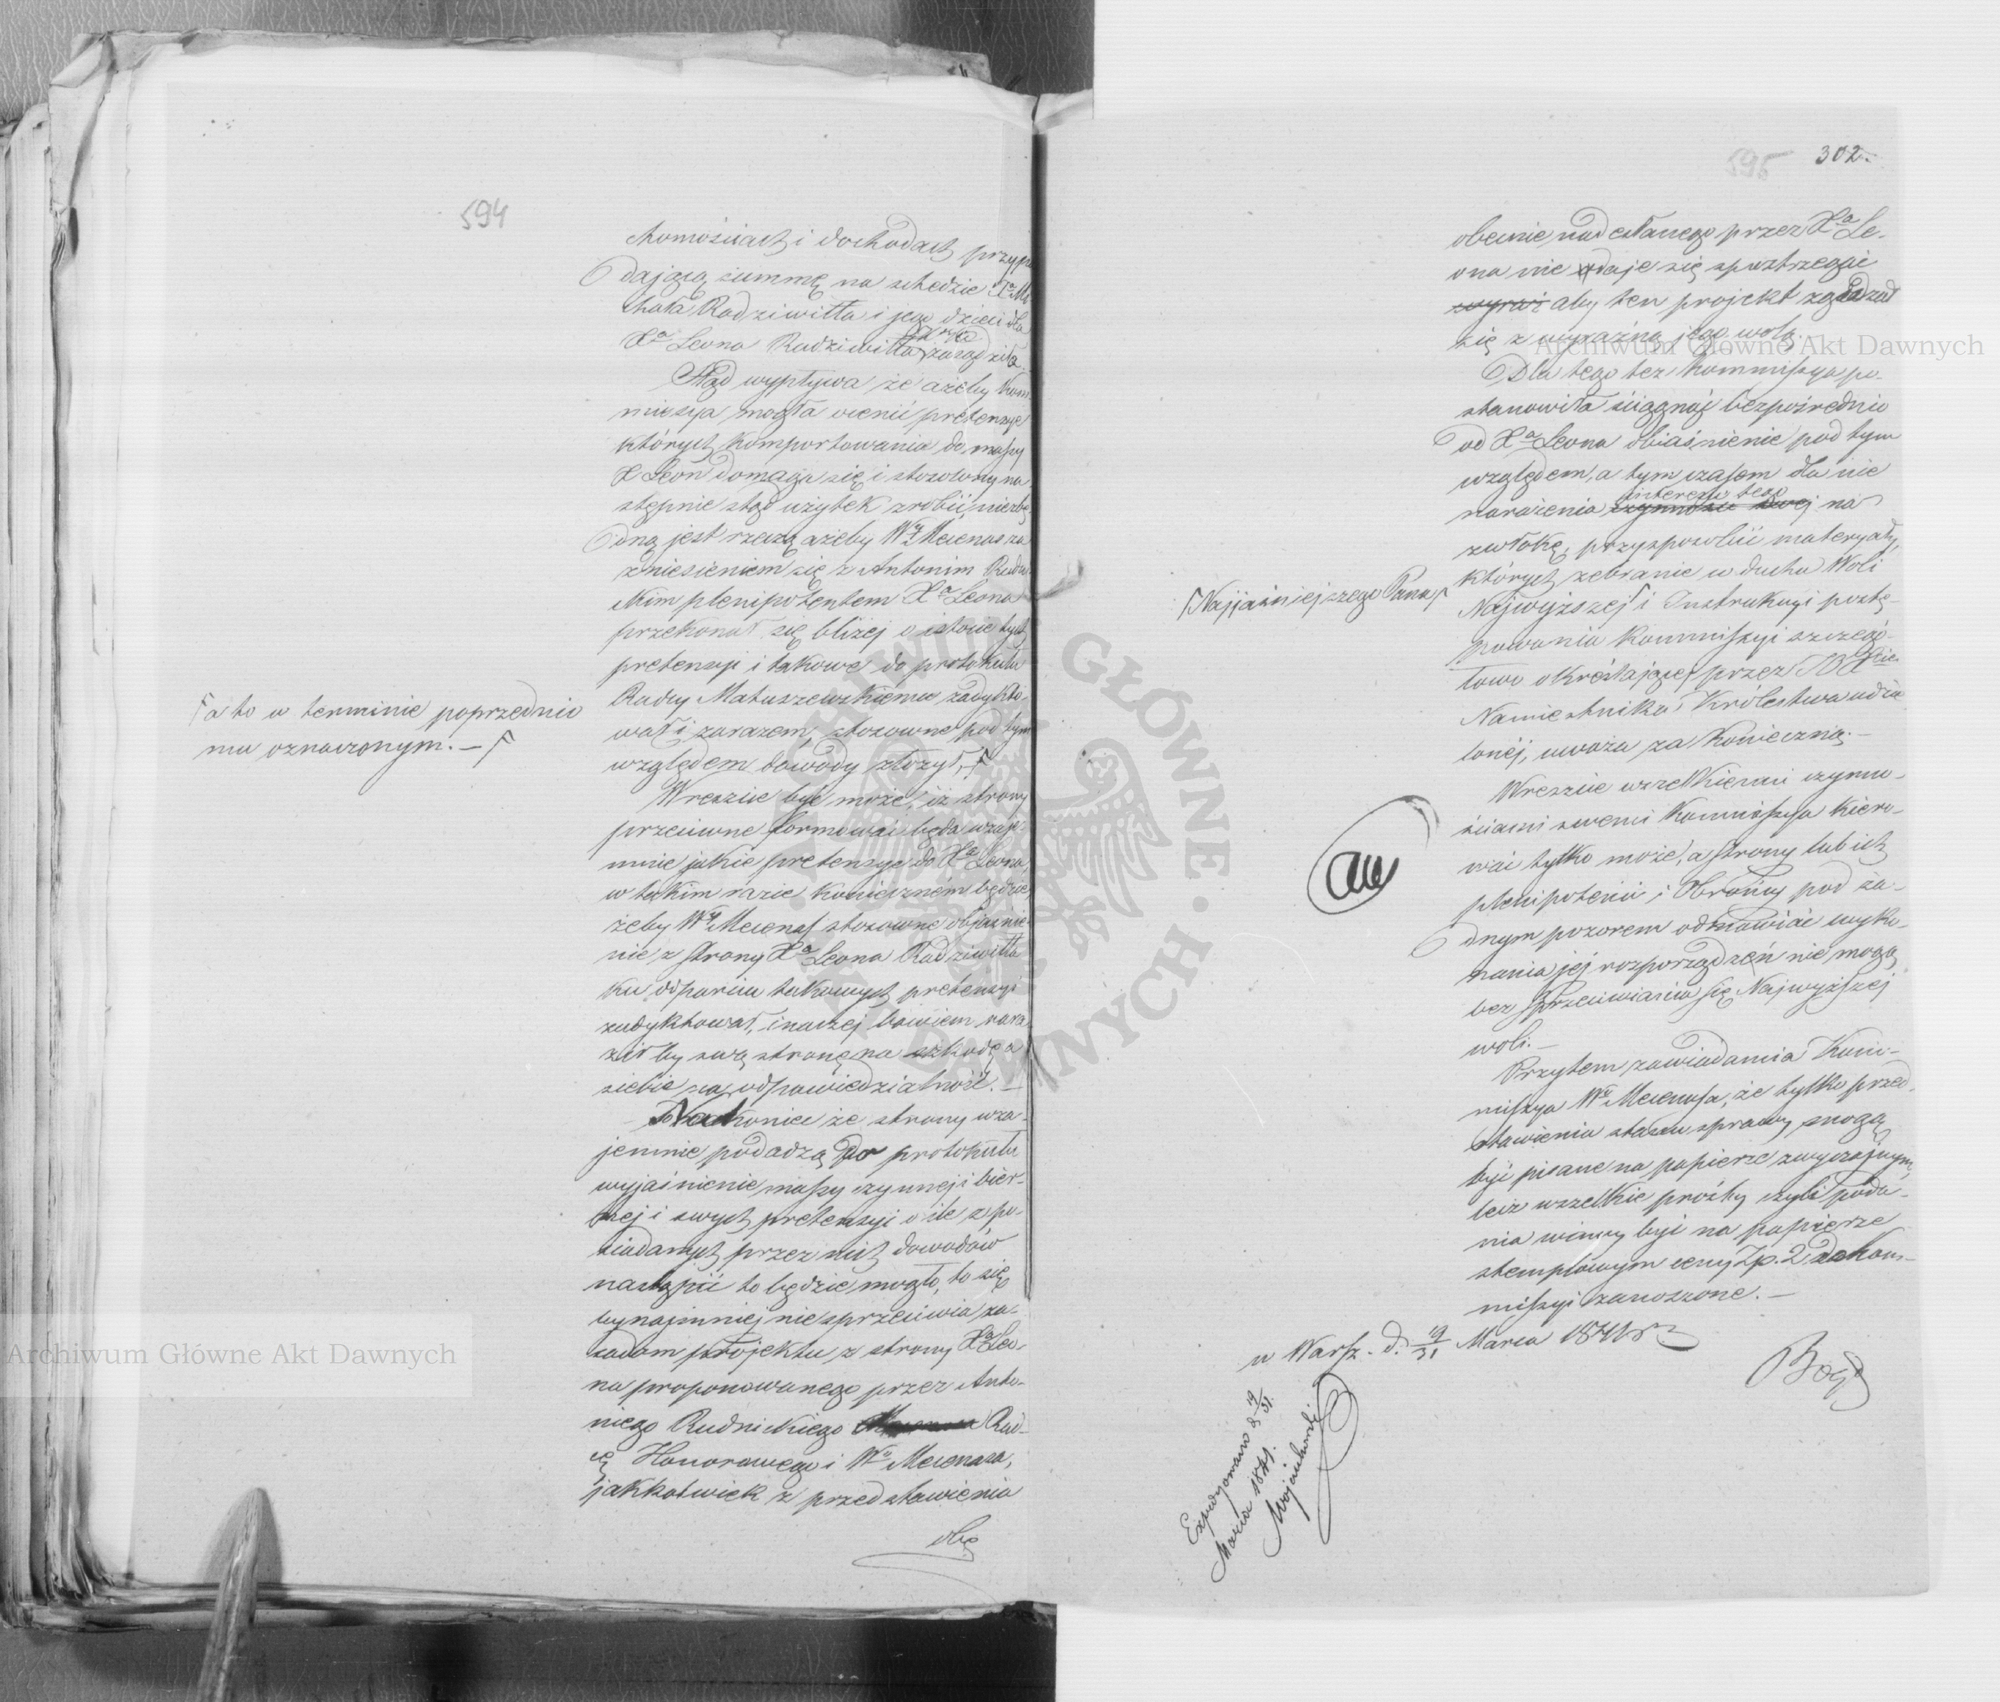 594
chomościach i dochodach przypa
dającą summę na schedzie Xa Mi
chała Radziwiłła i jego dzieci dla
Xa Leona Radziwiłła zarządziła.
Stąd wypływa że ażeby Kom
missya mogła ocenić pretensye
których komportowania do massy
X Leon domaga się i stosowny na
stępnie stąd użytek zrobić, niezbę
dną jest rzeczą ażeby Wy Mecenas za
zniesieniem się z Antonim Rudni
ckim plenipotentem Xa Leona
przekonał się bliżej o istocie tych
pretensyi i takowe do protokułu
Radcy Matuszewskiemu zadykto
wał i zarazem stosowne pod tym
względem dowody złożył,
a to w terminie poprzednio
mu oznaczonym. —
Wreszcie być może, iż strony
przeciwne formować będą wzaje
mnie jakie pretensye do Xa Leona,
w takim razie koniecznem będzie,
żeby Wy Mecenas stosowne objaśnie
nie z strony Xa Leona Radziwiłła
ku odparciu takowych pretensyi
zadyktował, inaczej bowiem nara
ziłby swą stronę na szkodę a
siebie na odpowiedzialność. —
Nakoniec że strony wza-
jemnie podadzą do protokułu
wyjaśnienie massy czynnej i bier-
nej i swych pretensyi o ile z po-
siadanych przez nich dowodów
nastąpić to będzie mogło, to się
bynajmniej nie sprzeciwia za-
sadom projektu z strony Xa Leo-
na proponowanego przez Anto-
niego Rudnickiego Rad-
cę Honorowego i Wo Mecenasa,
jakkolwiek z przedstawienia
obe
595 302.
obecnie nadesłanego przez Xa Le-
ona nie daje się spostrzegać
aby ten projekt zgadzał
się z wyraźną jego wolą.
Dla tego też Kommissya po-
stanowiła ściągnąć bezpośrednio
od Xa Leona objaśnienie pod tym
względem, a tym czasem dla nie
narażenia interesu tego na
zwłokę, przysposobić materyały,
których zebranie w duchu Woli
Najwyższej Najjaśniejszego Pana
i Instrukcyi postę-
powania Kommissyi szczegó-
łowo określającej przez JO Xcia
Namiestnika Królestwa udzie
lonéj, uważa za konieczne. —
Wreszcie wszelkiemi czynno-
ściami swemi Kommissya kiero-
wać tylko może, a strony lub ich
plenipotenci i Obrońcy pod ża-
dnym pozorem odmawiać wyko-
nania jej rozporządzeń nie mogą
bez sprzeciwiania się Najwyższej
woli. —
Przytem zawiadamia Kom-
missya Wo Mecenasa, że tylko przed-
stawienia stanu sprawy mogą
być pisane na papierze zwyczajnym,
lecz wszelkie prośby czyli poda-
nia winny być na papierze
stemplowym ceny Zp. 2 do Kom-
missyi zanoszone. —
w Warsz. d. 19/31 Marca 1841 r
Expedyowano d. 19/31.
Marca 1841.
Archiwum Główne Akt Dawnych
Archiwum Główne Akt Dawnych